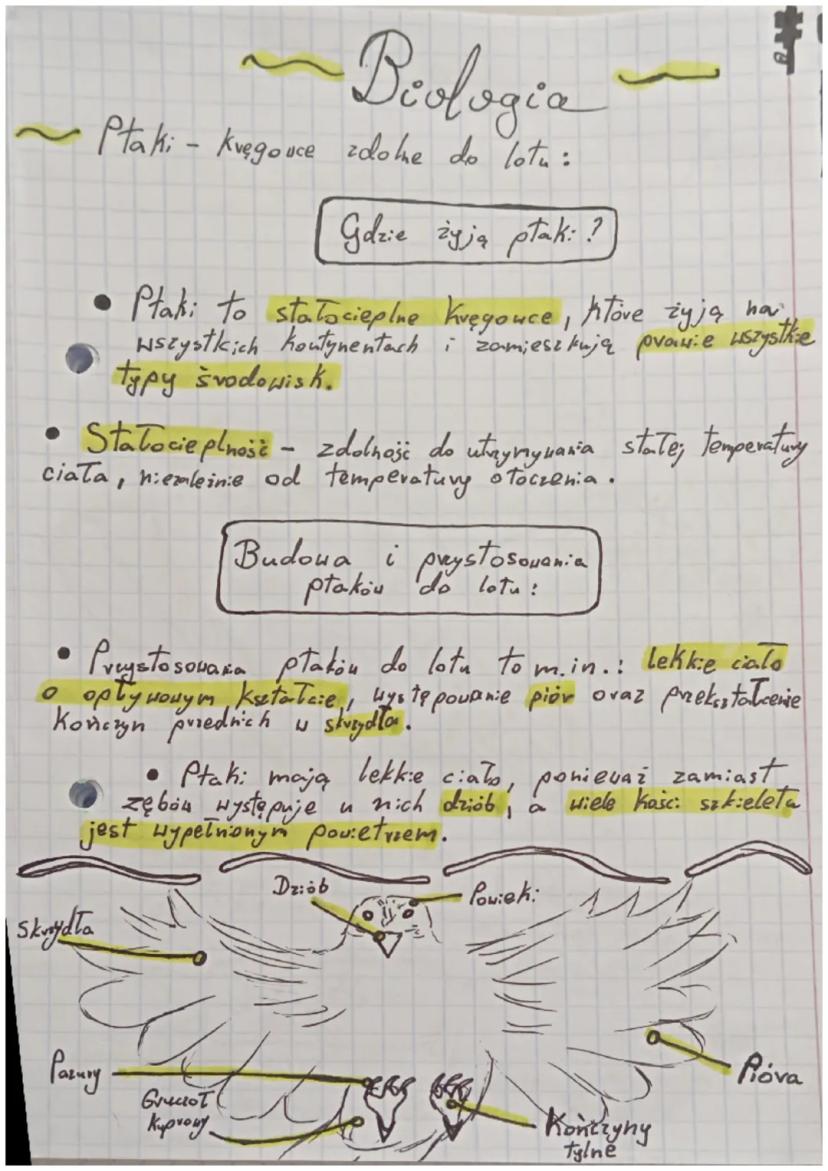 Biologia
Ptaki - kręgowce zdolne do lotu:
Gdzie żyją ptaki?
• Ptaki to stałocieplne kręgowce, które żyją na
wszystkich kontynentach i zamieszkują prawie wszystkie
typy środowisk.
• Stałocieplność - zdolność do utrzymywania stałej temperatury
ciała, niezależnie od temperatury otoczenia.
Budowa i przystosowania
ptaków do lotu:
• Przystosowania ptaków do lotu to m.in.: lekkie ciało
o opływowym kształcie, występowanie piór oraz przekształcenie
kończyn przednich w skrzydła.
• Ptaki mają lekkie ciało, ponieważ zamiast
zębów występuje u nich dziób, a wiele kości szkieleta
jest wypełnionym powietrzem.
Dziób
Powieki
Skrzydła
Pióra
Pazury
Gruczoł
kuprowy
Kończyny
tylne